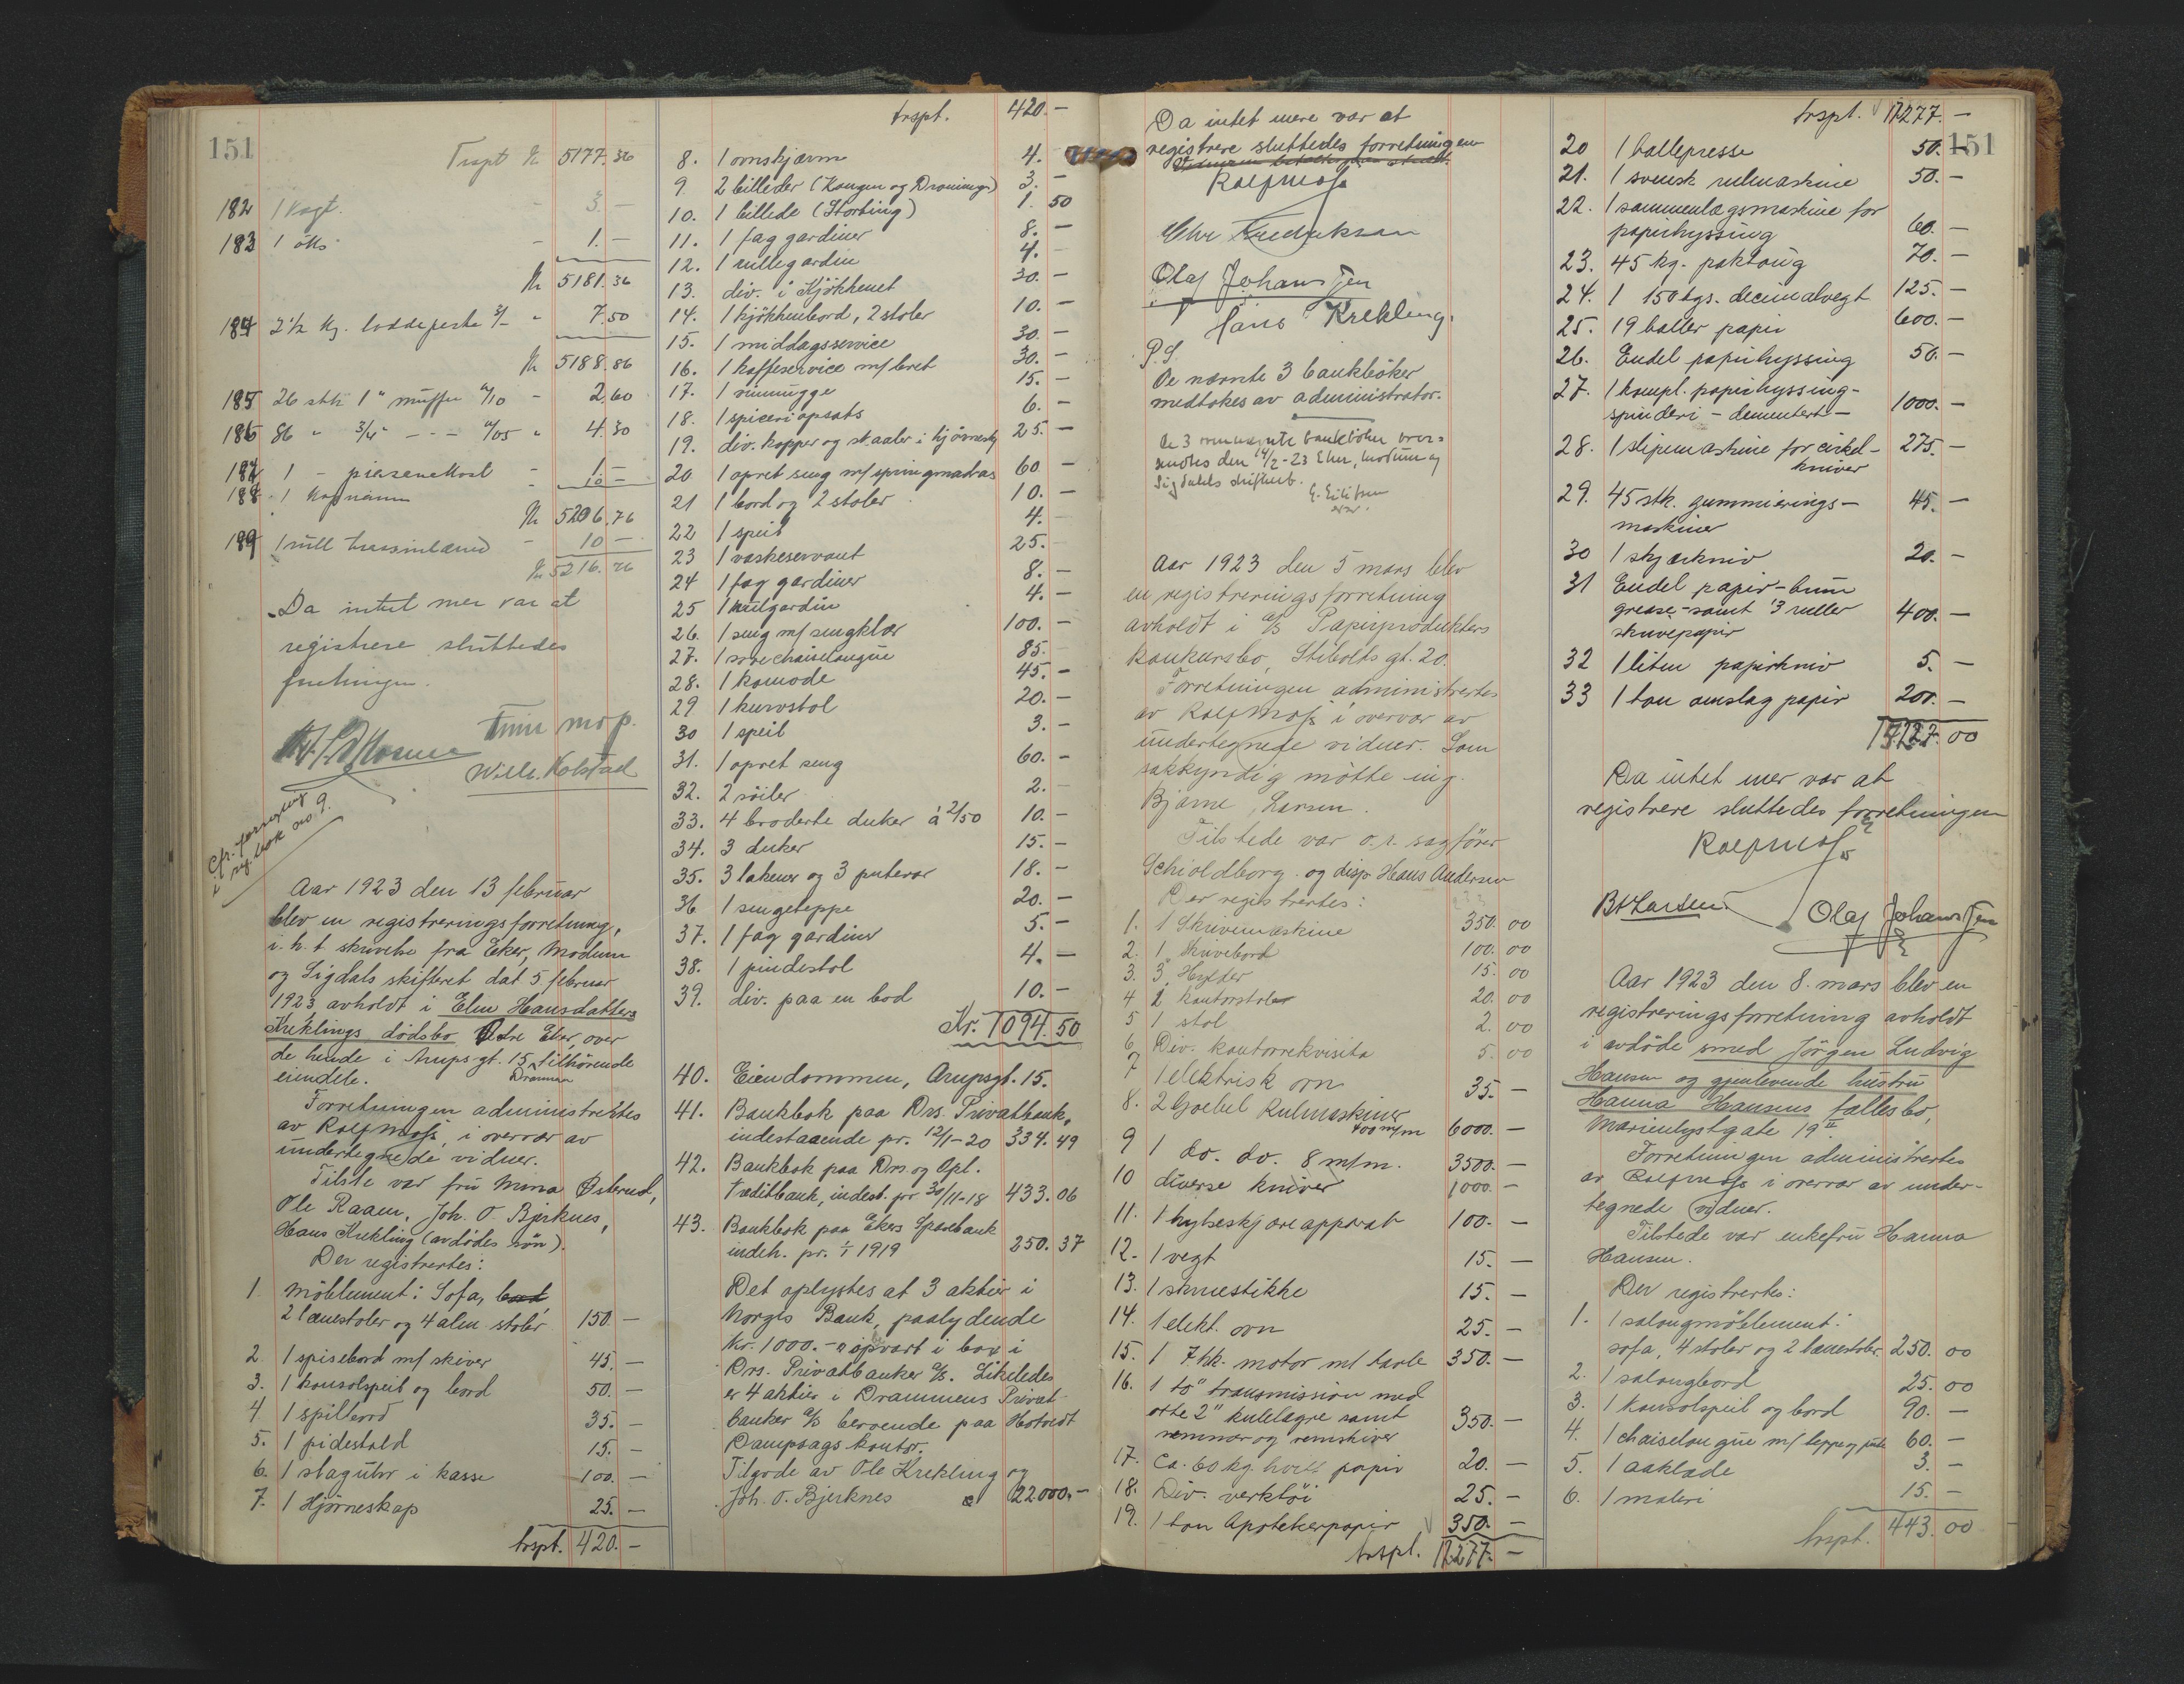 151
Trspt Kr 5177.36
182 1 Vagt. - 3.-
183 1 öks - 1.-
Kr 5181.36
184 2½ kg. loddepasta 3/- - 7.50
Kr 5188.86
185 26 stk 1" muffer a/10 - 2.60
186 86 " 3/4" - - - a/05 " 4.30
187 1 - - 1.-
188 1 - 10-
Kr 5206.76
189 1 rull - 10-
Kr 5216.76
Da intet mer var at
registrere sluttedes
forretningen.
Wilh. Kolstad
Cfr. forregning
i reg. bok no 9.
Aar 1923 den 13 februar
blev en registreringsforretning,
i. h. t. skrivelse fra Eker, Modum
og Sigdals skifteret dat 5 februar
1923, avholdt i Elen Hansdatters
Kreklings dödsbo Övre Eker, over
de hende i Arups-gt. 15, tilhörende
Drammen
eiendele.
Forretningen administrertes
av Rolf Moss, i overvær av
undertegnede vidner.
Tilste var fru Mina Østerud,
Ole Raaen, Joh. O. Bjerknes,
Hans Krekling (avdödes sön).
Der registrertes:
1. Möblement: Sofa, bord
2 lænestoler og 4 alm. stoler 150.-
2. 1 spisebord m/ skiver 45.-
3. 1 konsolspeil og bord 50.-
4 1 spillbord 35.-
5. 1 pidestald 15.-
6. 1 slaguhr i kasse 100.-
7. 1 Hjörneskap 25.-
trspt. 420.-
trspt. 420.-
8. 1 ovnskjærm 4.-
9. 2 billeder (Kongen og Droningn) 3.-
10. 1 billede (Storting) 1.50
11. 1 fag gardiner 8.-
12. 1 rullegardin 4.-
13. div. i Kjökkenet 20.-
14. 1 kjökkenbord, 2 stoler 10.-
15. 1 middagsservice 30.-
16. 1 kaffeservice m/ bret 30.-
17. 1 vinmugge 15.-
18. 1 spiceriopsats 6.-
19. div. kopper og skaaler i hjörnesk. 25.-
20 1 opret seng m/ springmadras 60.-
21 1 bord og 2 stoler 10.-
22 1 speil 4.-
23 1 vaskeservant 25.-
24 1 fag gardiner 8.-
25 1 rullgardin 4.-
26. 1 seng m/ sengklær 100.-
27. 1 sovechaiselongue 85.-
28. 1 komode 45.-
29 1 kurvstol 20.-
30 1 speil 3.-
31. 1 opret seng 60.-
32. 2 söiler 2.-
33. 4 broderte duker à 2/50 10.-
34. 3 duker 15.-
35. 3 lakener og 3 putevar 18.-
36 1 sengeteppe 20.-
37. 1 fag gardiner 5.-
38. 1 pindestol 4.-
39. div. paa en bod 10.-
Kr. 1094.50
40. Eiendommen, Arupsgt. 15.
41. Bankbok paa Drs. Privatbank,
indestaaende pr. 12/1-20 334.49
42. Bankbok paa Drs. og Opl.
Kreditbank, indest. pr 30/11-18 433.06
43. Bankbok paa Ekers Sparebank
indeh. pr. 1/1 1919 250.37
Det oplystes at 3 aktier i
Norges Bank, paalydende
Kr. 1000.- er opbevart i box i
Drs. Privatbanker a/s. Likeledes
er 4 aktier i Drammens Privat-
banker a/s beroende paa Hotvedt
Dampsags kontor.
Tilgode av Ole Krekling og
Joh. O. Bjerknes 22000.-
Da intet mere var at
registrere sluttedes forretningen
Rolf Moss
Chr Fredriksen
Olaf Johanssen
Hans Krekling.
P.S.
De nævnte 3 bankböker
medtokes av administrator.
De 3 ovennævnte bankböker over-
sendtes den 14/2-23 Eker, Modum og
Sigdals skifteret.
E. Eilifsen
Aar 1923 den 5 mars blev
en registreringsforretning
avholdt i a/s Papirprodukters
konkursbo, Stibolts gt. 20.
Forretningen administrertes
av Rolf Moss i overvær av
undertegnede vidner. Som
sakkyndig mötte ing.
Bjarne Larsen.
Tilstede var o.r. sagförer
Schioldborg. og disp Hans Andersen
Der registrertes:
1. 1 Skrivemaskine 350.00
2. 1 Skrivebord 100.00
3. 3 Hylder 15.00
4 2 kontorstoler 20.00
5 1 stol 2.00
6 Div. kontorrekvisita 5.00
7 1 elektrisk ovn 35.-
8. 2 Goebel Rulmaskiner
400 m/m 6000.-
9 1 do. do. 8 m/m. 3500.-
10 diverse kniver 1000.-
11. 1 hylseskjæreapparat 100.-
12. 1 vegt 15.-
13. 1 skruestikke 15.-
14. 1 elekt. ovn 25.-
15. 1 7 hk. motor m/ tavle 350.-
16. 1 to" transmission med
otte 2" kulelagre samt
remmer og remskiver 350.-
17. Ca. 60 kg. hvitt papir 20.-
18. Div. verktöi 25.-
19. 1 ton Apotekerpapir 350.-
trspt. 12277.-
trspt. 12277.-
151
20 1 ballepresse 50.-
21. 1 svensk rulmaskine 50.-
22. 1 sammenlægsmaskine for
papirhyssing 60.-
23. 45 kg. paktöug 70.-
24. 1 150 kgs. decimalvegt 125.-
25. 19 baller papir 600.-
26. Endel papirhyssing 50.-
27. 1 kompl. papirhyssing-
spinderi - dementert - 1000.-
28. 1 slipemaskine for cirkel-
kniver 275.-
29. 45 stk. gummierings-
maskiner 45.-
30 1 skjærkniv 20.-
31 Endel papir - brun
grease - samt 3 ruller
skrivepapir 400.-
32 1 liten papirkniv 5.-
33 1 ton omslag papir 200.-
Da intet mer var at
registrere sluttedes forretningen
Rolf Moss
B Larsen.
Olaf Johanssen
Aar 1923 den 8. mars blev en
registreringsforretning avholdt
i avdöde smed Jörgen Ludvig
Hansen og gjenlevende hustru
Hanna Hansens fællesbo,
Marienlystgate 19 II.
Forretningen administrertes
av Rolf Moss i overvær av under-
tegnede vidner.
Tilstede var enkefru Hanna
Hansen.
Der registrertes:
1. 1 salongmöblement:
sofa, 4 stoler og 2 lænestoler 250.00
2. 1 salongbord 25.00
3. 1 konsolspeil og bord 90.-
4. 1 chaiselongue m/ teppe og pute 60.-
5. 1 aaklæde 3.-
6. 1 maleri 15.-
trspt. 443.00